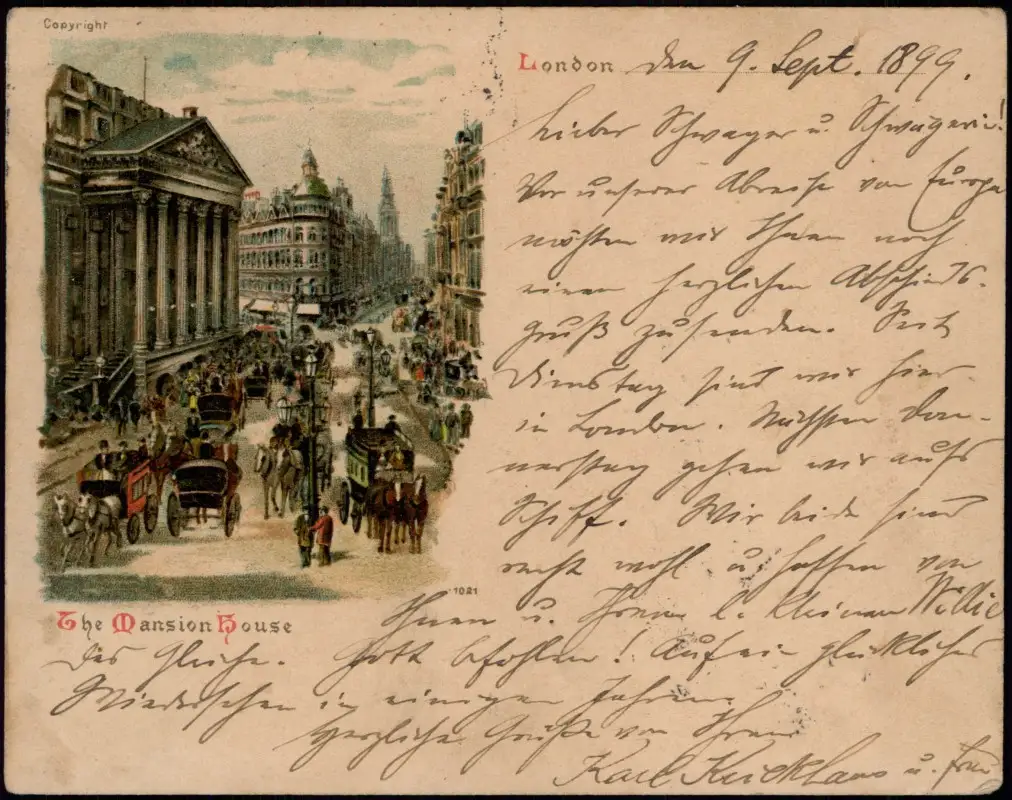 Copyright
London den 9. Sept. 1899.
Lieber Schwager u. Schwägerin!
Vor unserer Abreise von Europa
möchten wir Ihnen noch
einen herzlichen Abschieds-
gruß zusenden. Seit
Dienstag sind wir hier
in London. Nächsten Don-
nerstag gehen wir aufs
Schiff. Wir beide sind
recht wohl u. hoffen von
1021
Ihnen u. Ihrem l. kleinen Willie
The Mansion House
das Gleiche. Gott befohlen! Auf ein glückliches
Wiedersehen in einigen Jahren.
Herzliche Grüße von Ihrem
Karl u. Frau